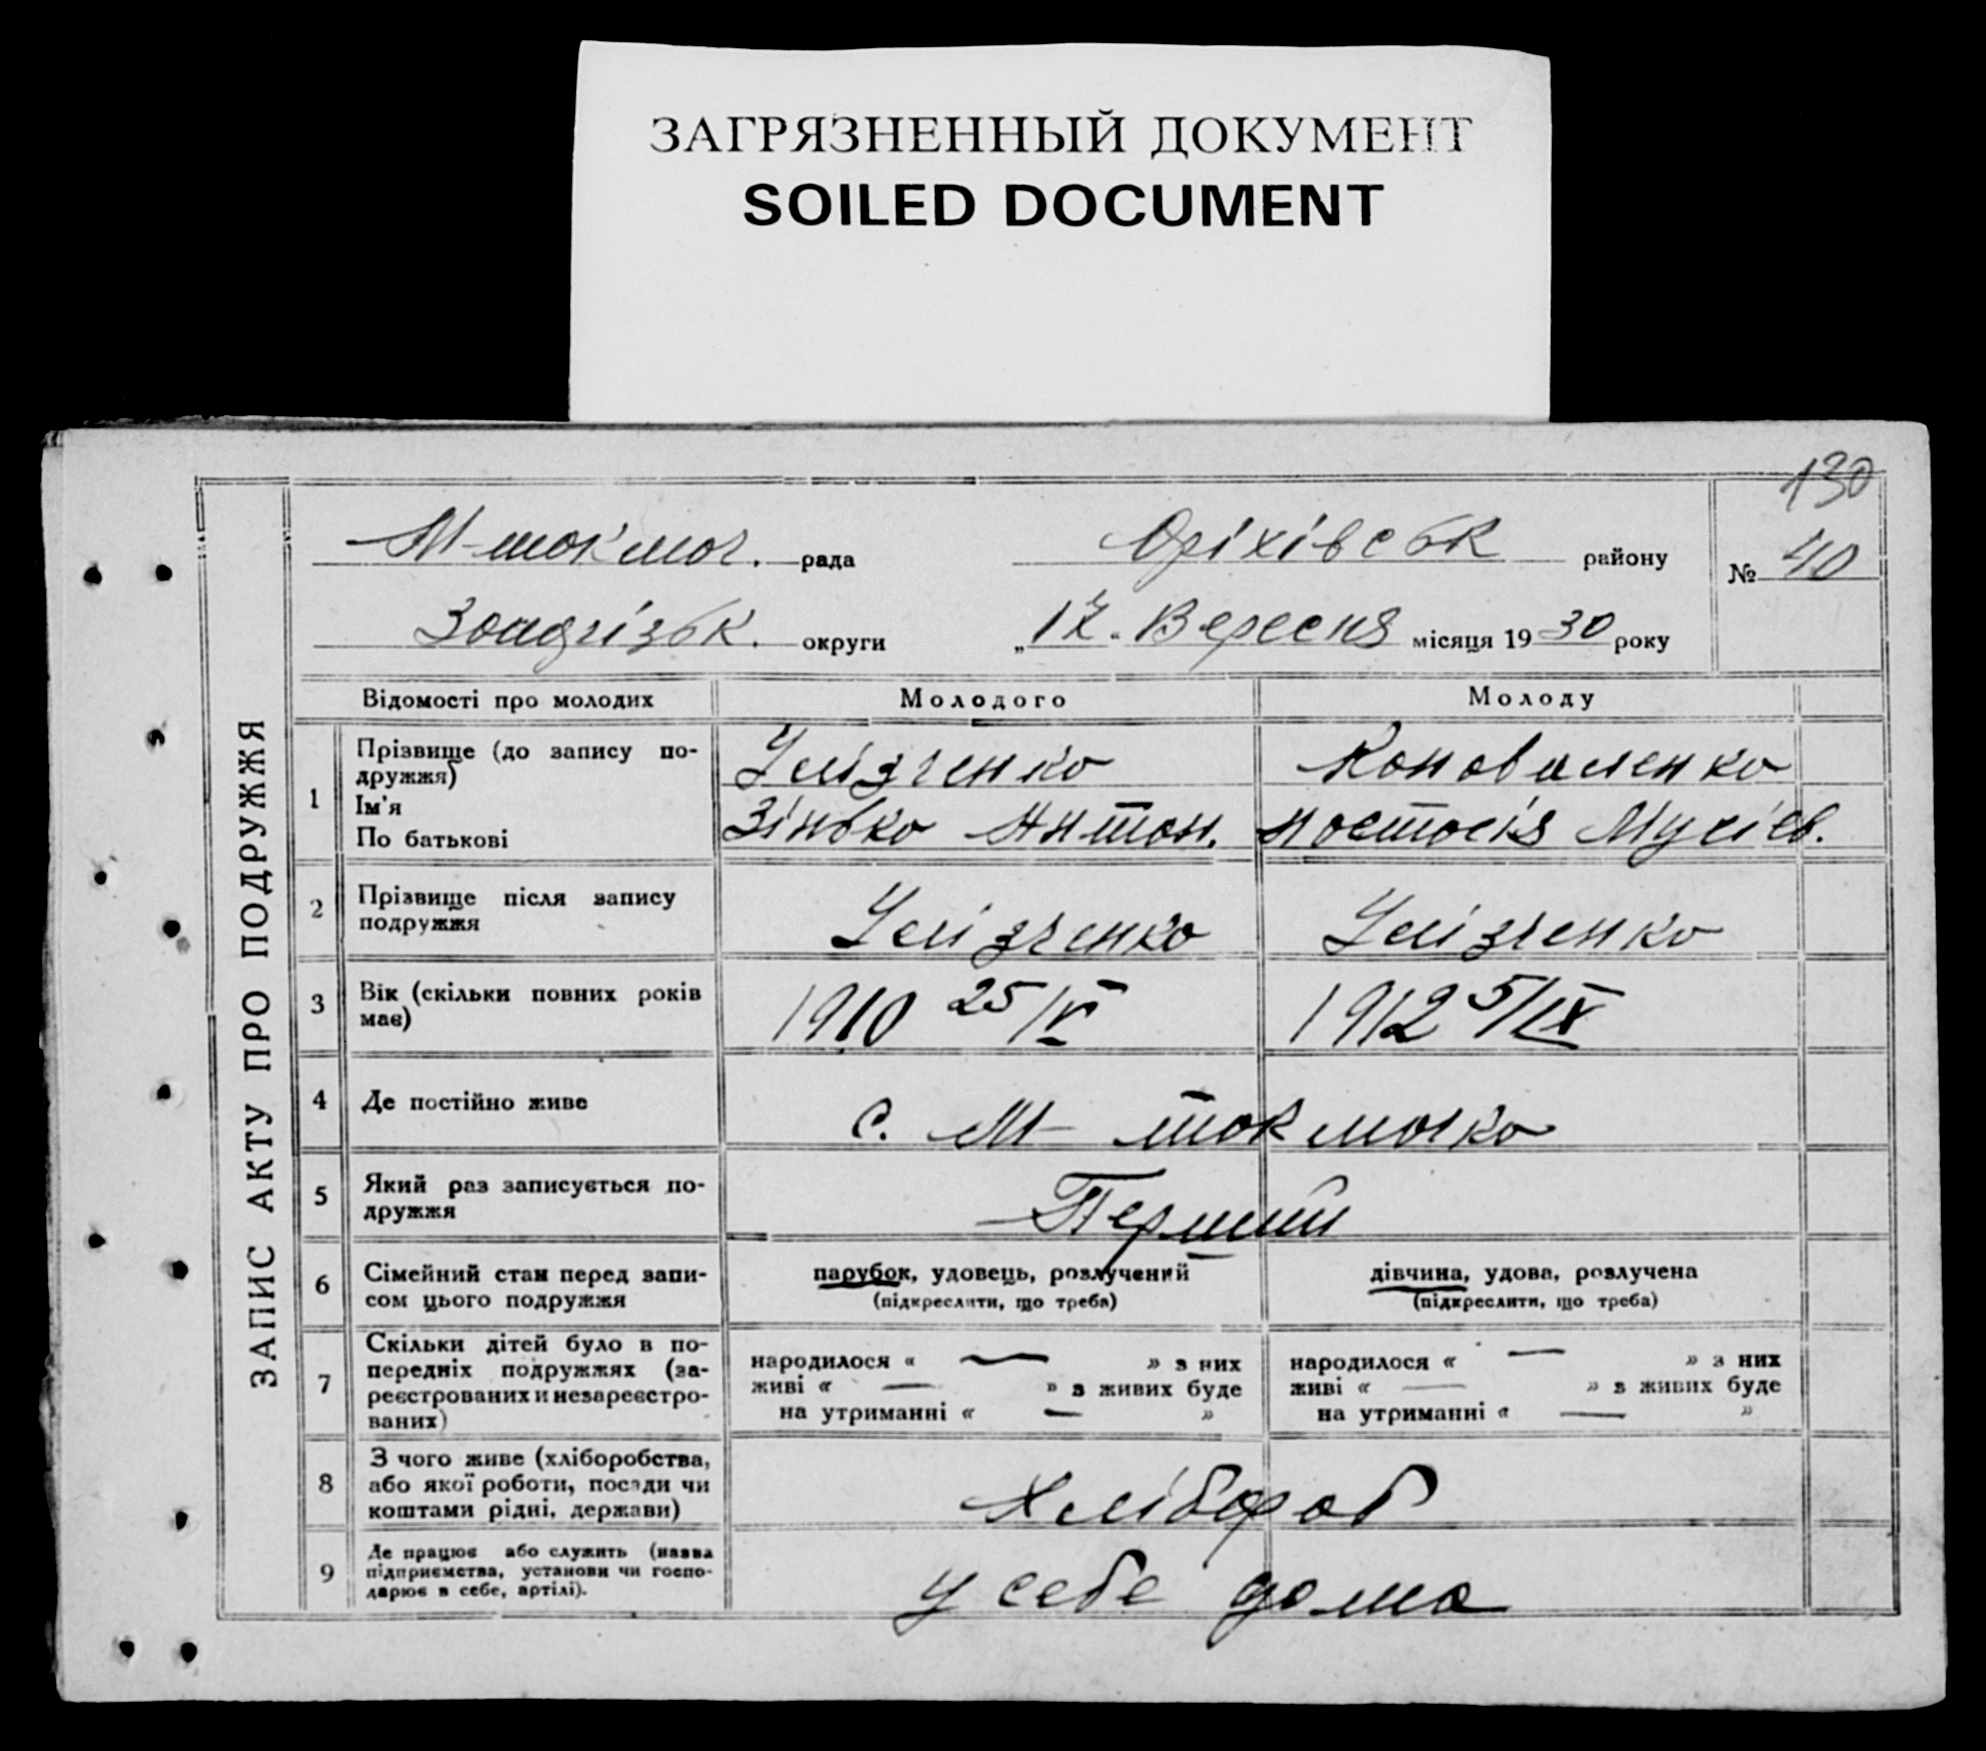 ЗАГРЯЗНЕННЫЙ ДОКУМЕНТ
SOILED DOCUMENT
130
М-токмач. рада Оріхівськ району № 40
округи „ Вересня місяця 1930 року
ЗАПИС АКТУ ПРО ПОДРУЖЖЯ
Відомості про молодих Молодого Молоду
1 Прізвище (до запису по-
дружжя) Коноваленко
Ім'я
По батькові Зінько Антон. Настасія Мусієв.
2 Прізвище після запису
подружжя
3 Вік (скільки повних років
має) 1910 25/V 1912 5/IX
4 Де постійно живе с. М-токмачка
5 Який раз записується по-
дружжя Перший
6 Сімейний стан перед запи-
сом цього подружжя
парубок, удовець, розлучений
(підкреслити, що треба)
дівчина, удова, розлучена
(підкреслити, що треба)
7 Скільки дітей було в по-
передніх подружжях (за-
реєстрованих и незареєстро-
ваних)
народилося « — » з них
живі « — » з живих буде
на утриманні « — »
народилося « — » з них
живі « — » з живих буде
на утриманні « — »
8 З чого живе (хліборобства,
або якої роботи, посади чи
коштами рідні, держави) Хлібороб
9 Де працює або служить (назва
підприємства, установи чи госпо-
дарює в себе, артілі). у себе дома